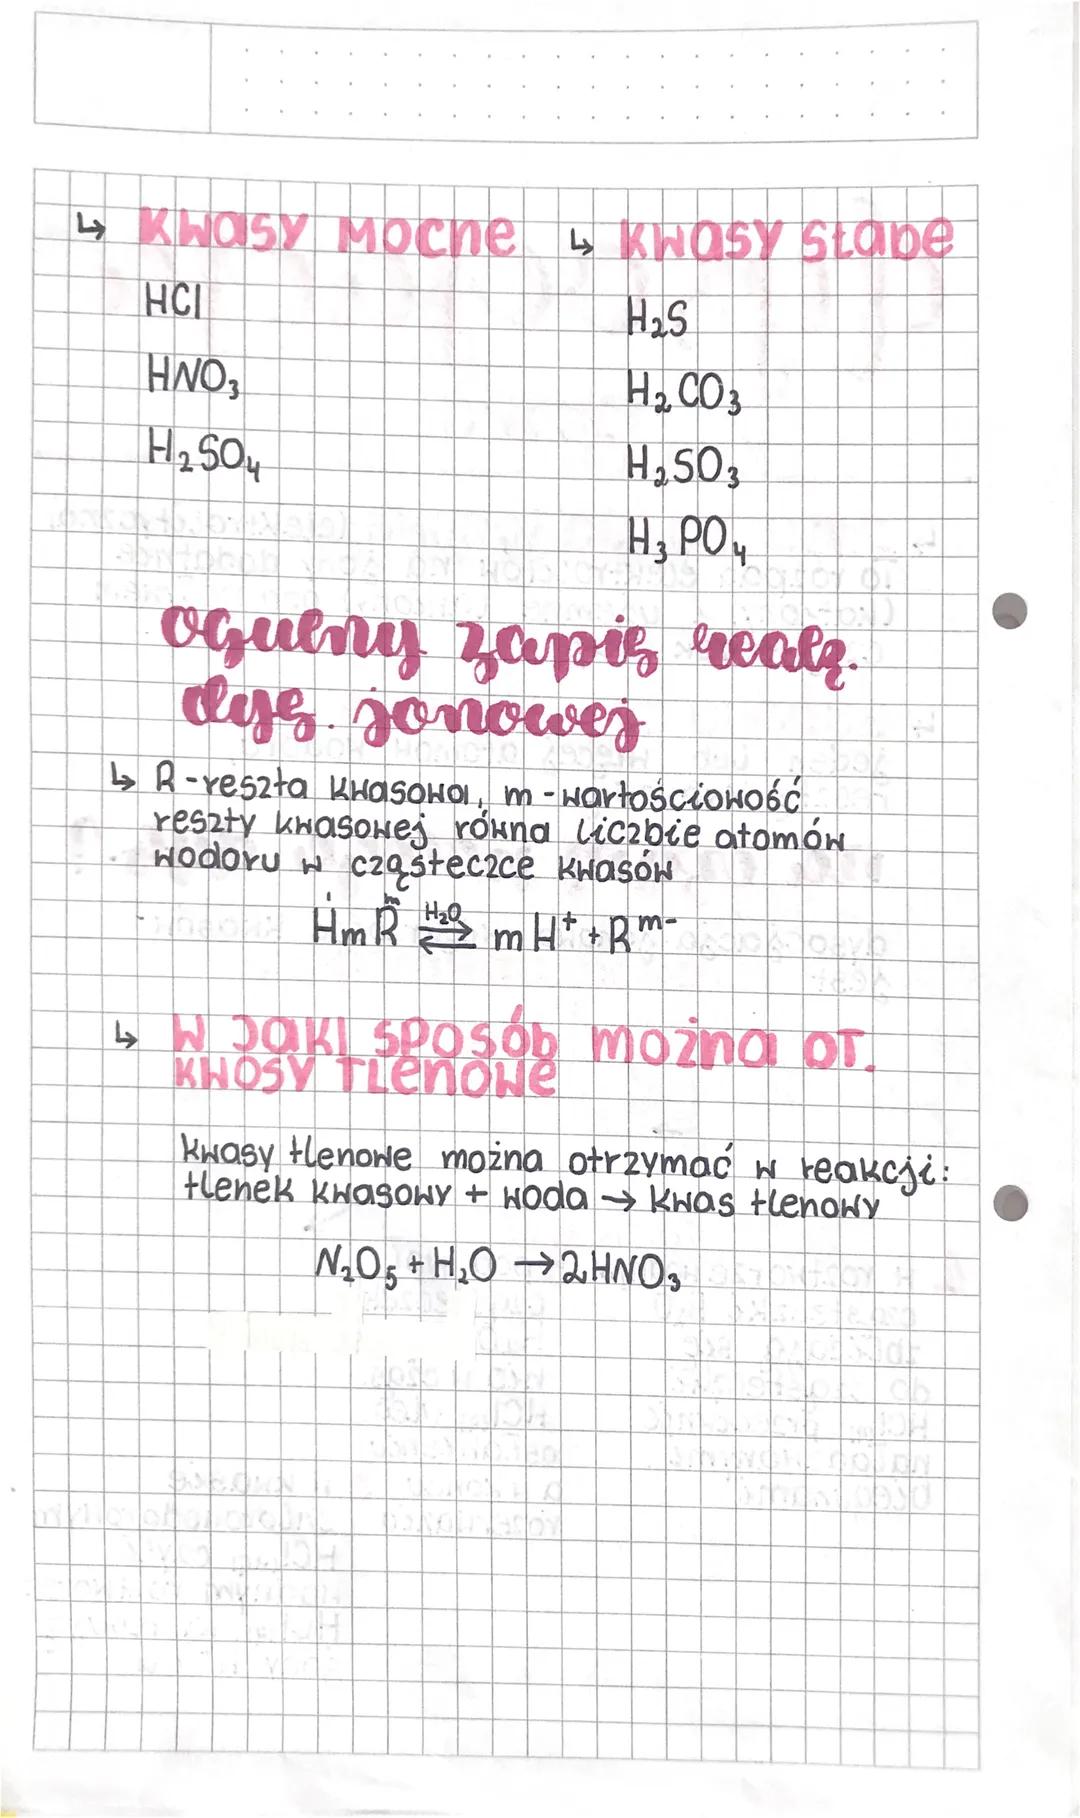 ↳ Kwasy mocne
HCl
HNO₃
H₂SO₄
↳ Kwasy słabe
H₂S
H₂CO₃
H₂SO₃
H₃PO₄
ogulny zapis reakc.
dys. jonowej
↳ R-reszta kwasowa, m-wartościowość
reszty kwasowej równa liczbie atomów
wodoru w cząsteczce kwasów
HmR ⇄ mH⁺ + Rᵐ⁻
H₂O
↳ W jaki sposób można ot.
kwosy tlenowe
kwasy tlenowe można otrzymać w reakcji:
tlenek kwasowy + woda → kwas tlenowy
N₂O₅ + H₂O → 2HNO₃